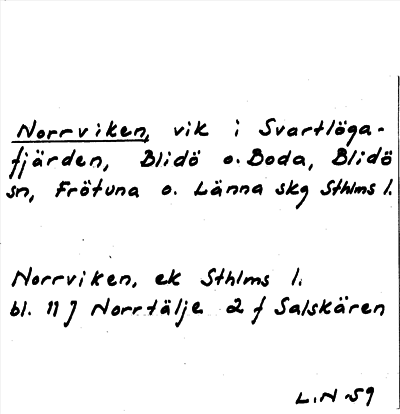 Norrviken, vik i Svartlöga-
fjärden, Blidö o. Boda, Blidö
sn, Frötuna o. Länna skg Sthlms l.
Norrviken, ek Sthlms l.
bl. 11 J Norrtälje 2 f Salskären
L.N -59